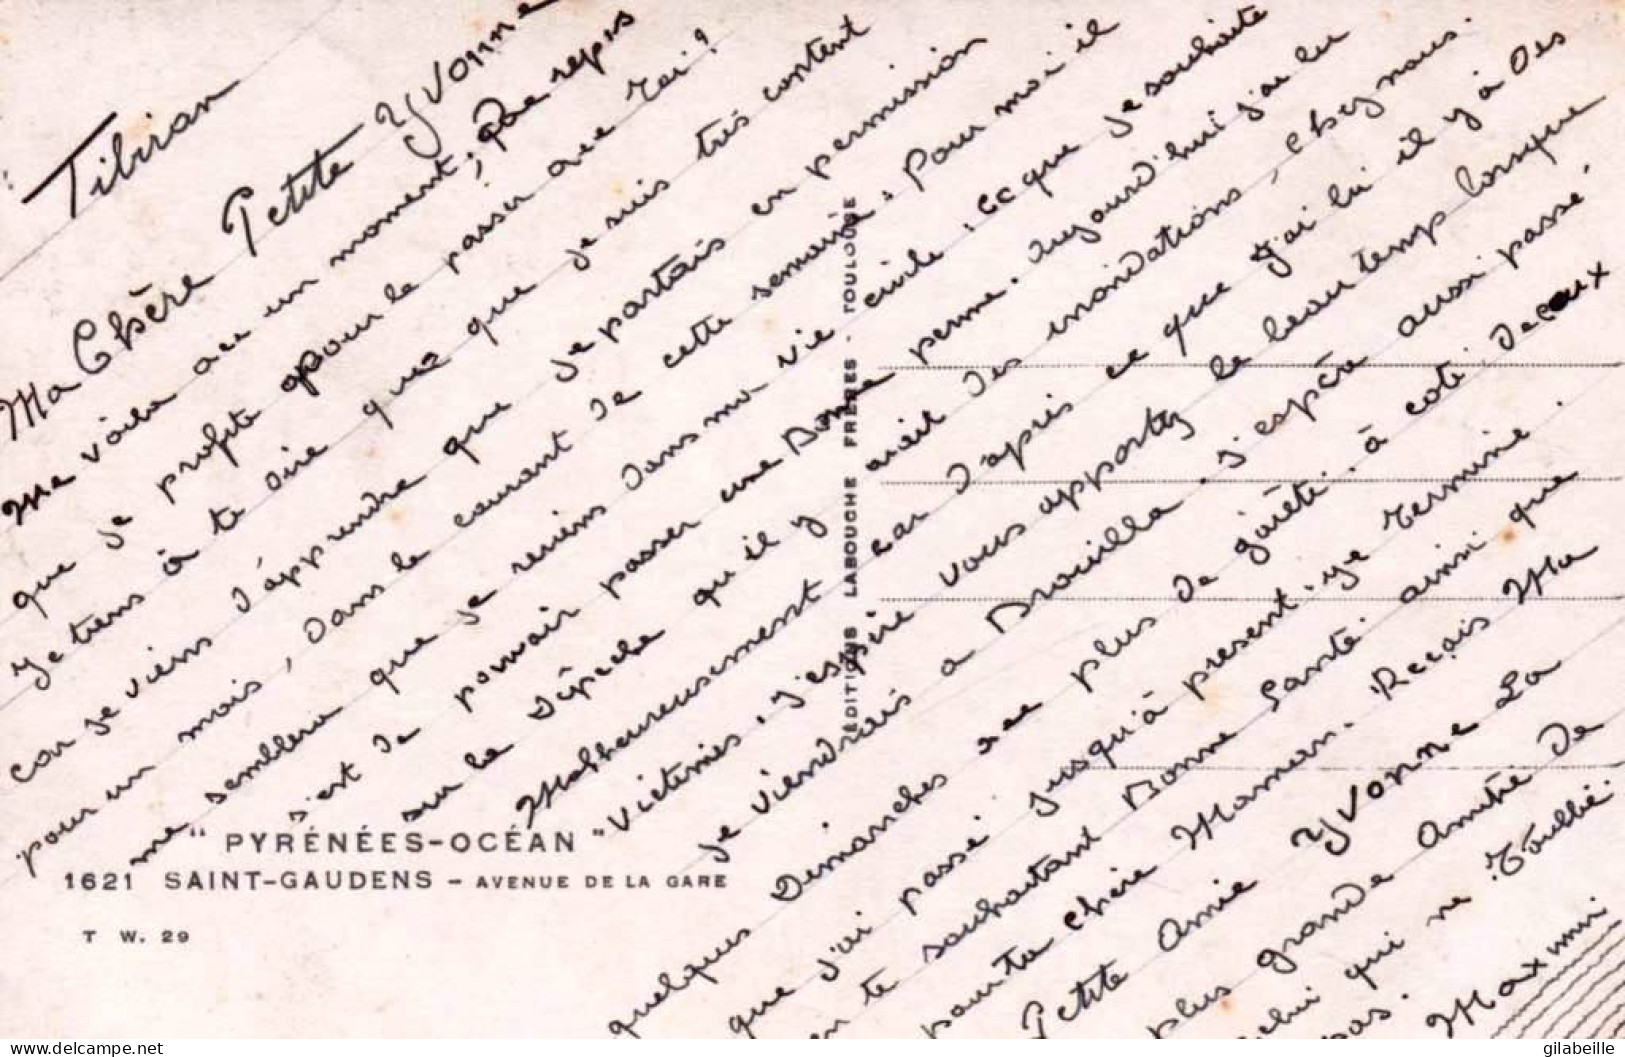 Tibiran
Ma Chère Petite Yvonne
Me voila a un moment, de repos
que je profite pour le passer avec toi!
Je tiens à te dire que que je suis très content
car je viens d'apprendre que je partais en permission
pour un mois, dans le courant de cette semaine. Pour moi il
me semblera que je reviens dans ma vie civile. ce que je souhaite
s'est de pouvoir passer une Bonne perme. Aujourd'hui j'ai lu
sur la Dépeche qu'il y avait des inondations, chez nous.
Malheureusement car d'après ce que j'ai lu il y à des
Victimes. j'espère vous apportez le beau temps lorsque
je viendrais a Brouilla. j'espère aussi passé
quelques Dimanches a plus de gaiêté. à coté de ceux
que j'ai passé jusqu'à present. je termine.
en te souhaitant Bonne Santé. ainsi que
pour ta chère Maman. Reçais Ma
Petite Amie Yvonne La
plus grande Amitié de
celui qui ne t'oublié.
pas.
Maximin
" PYRÉNÉES-OCÉAN "
1621 SAINT-GAUDENS - AVENUE DE LA GARE
T W. 29
ÉDITIONS LABOUCHE FRÈRES - TOULOUSE
www.delcampe.net
gilabeille